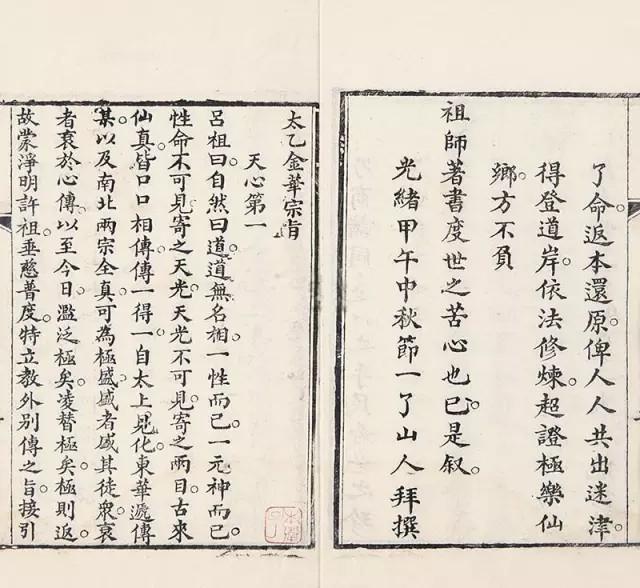 了命返本還原。俾人人共出迷津。
得登道岸。依法修煉。超證極樂仙
鄉方不負
祖師著書度世之苦心也已。是叙。
光緒甲午中秋節一了山人拜撰
太乙金華宗旨
天心第一
呂祖曰。自然曰道。道無名相。一性而已。一元神而已。
性命不可見。寄之天光。天光不可見。寄之兩目。古來
仙真。皆口口相傳。傳一得一。自太上見化。東華遞傳
某。以及南北兩宗。全真可為極盛。盛者盛其徒眾。衰
者衰於心傳。以至今日。濫泛極矣。凌替極矣。極則返。
故蒙淨明許祖。垂慈普度。特立教外別傳之旨。接引